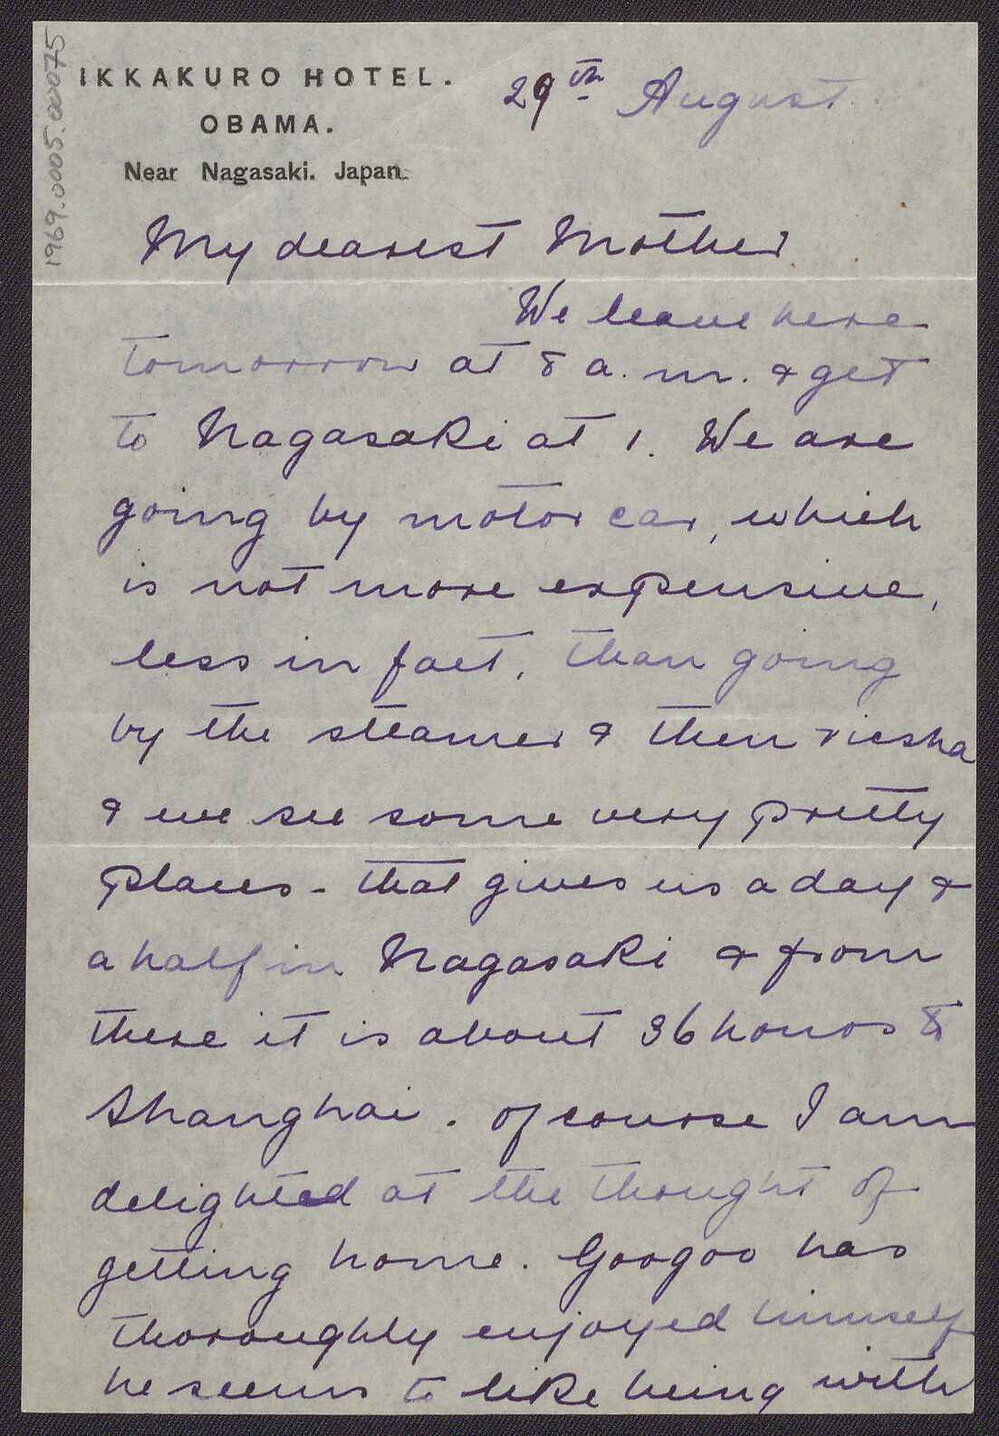 1969.0005.00075
IKKAKURO HOTEL.
OBAMA.
Near Nagasaki. Japan.
29th August
My dearest Mother
We leave here
tomorrow at 8 a.m. & get
to Nagasaki at 1. We are
going by motor car, which
is not more expensive,
less in fact, than going
by the steamer & then ricsha
& we see some very pretty
places - that gives us a day &
a half in Nagasaki & from
there it is about 36 hours to
Shanghai. Of course I am
delighted at the thought of
getting home. Googoo has
thoroughly enjoyed himself
he seems to like being with